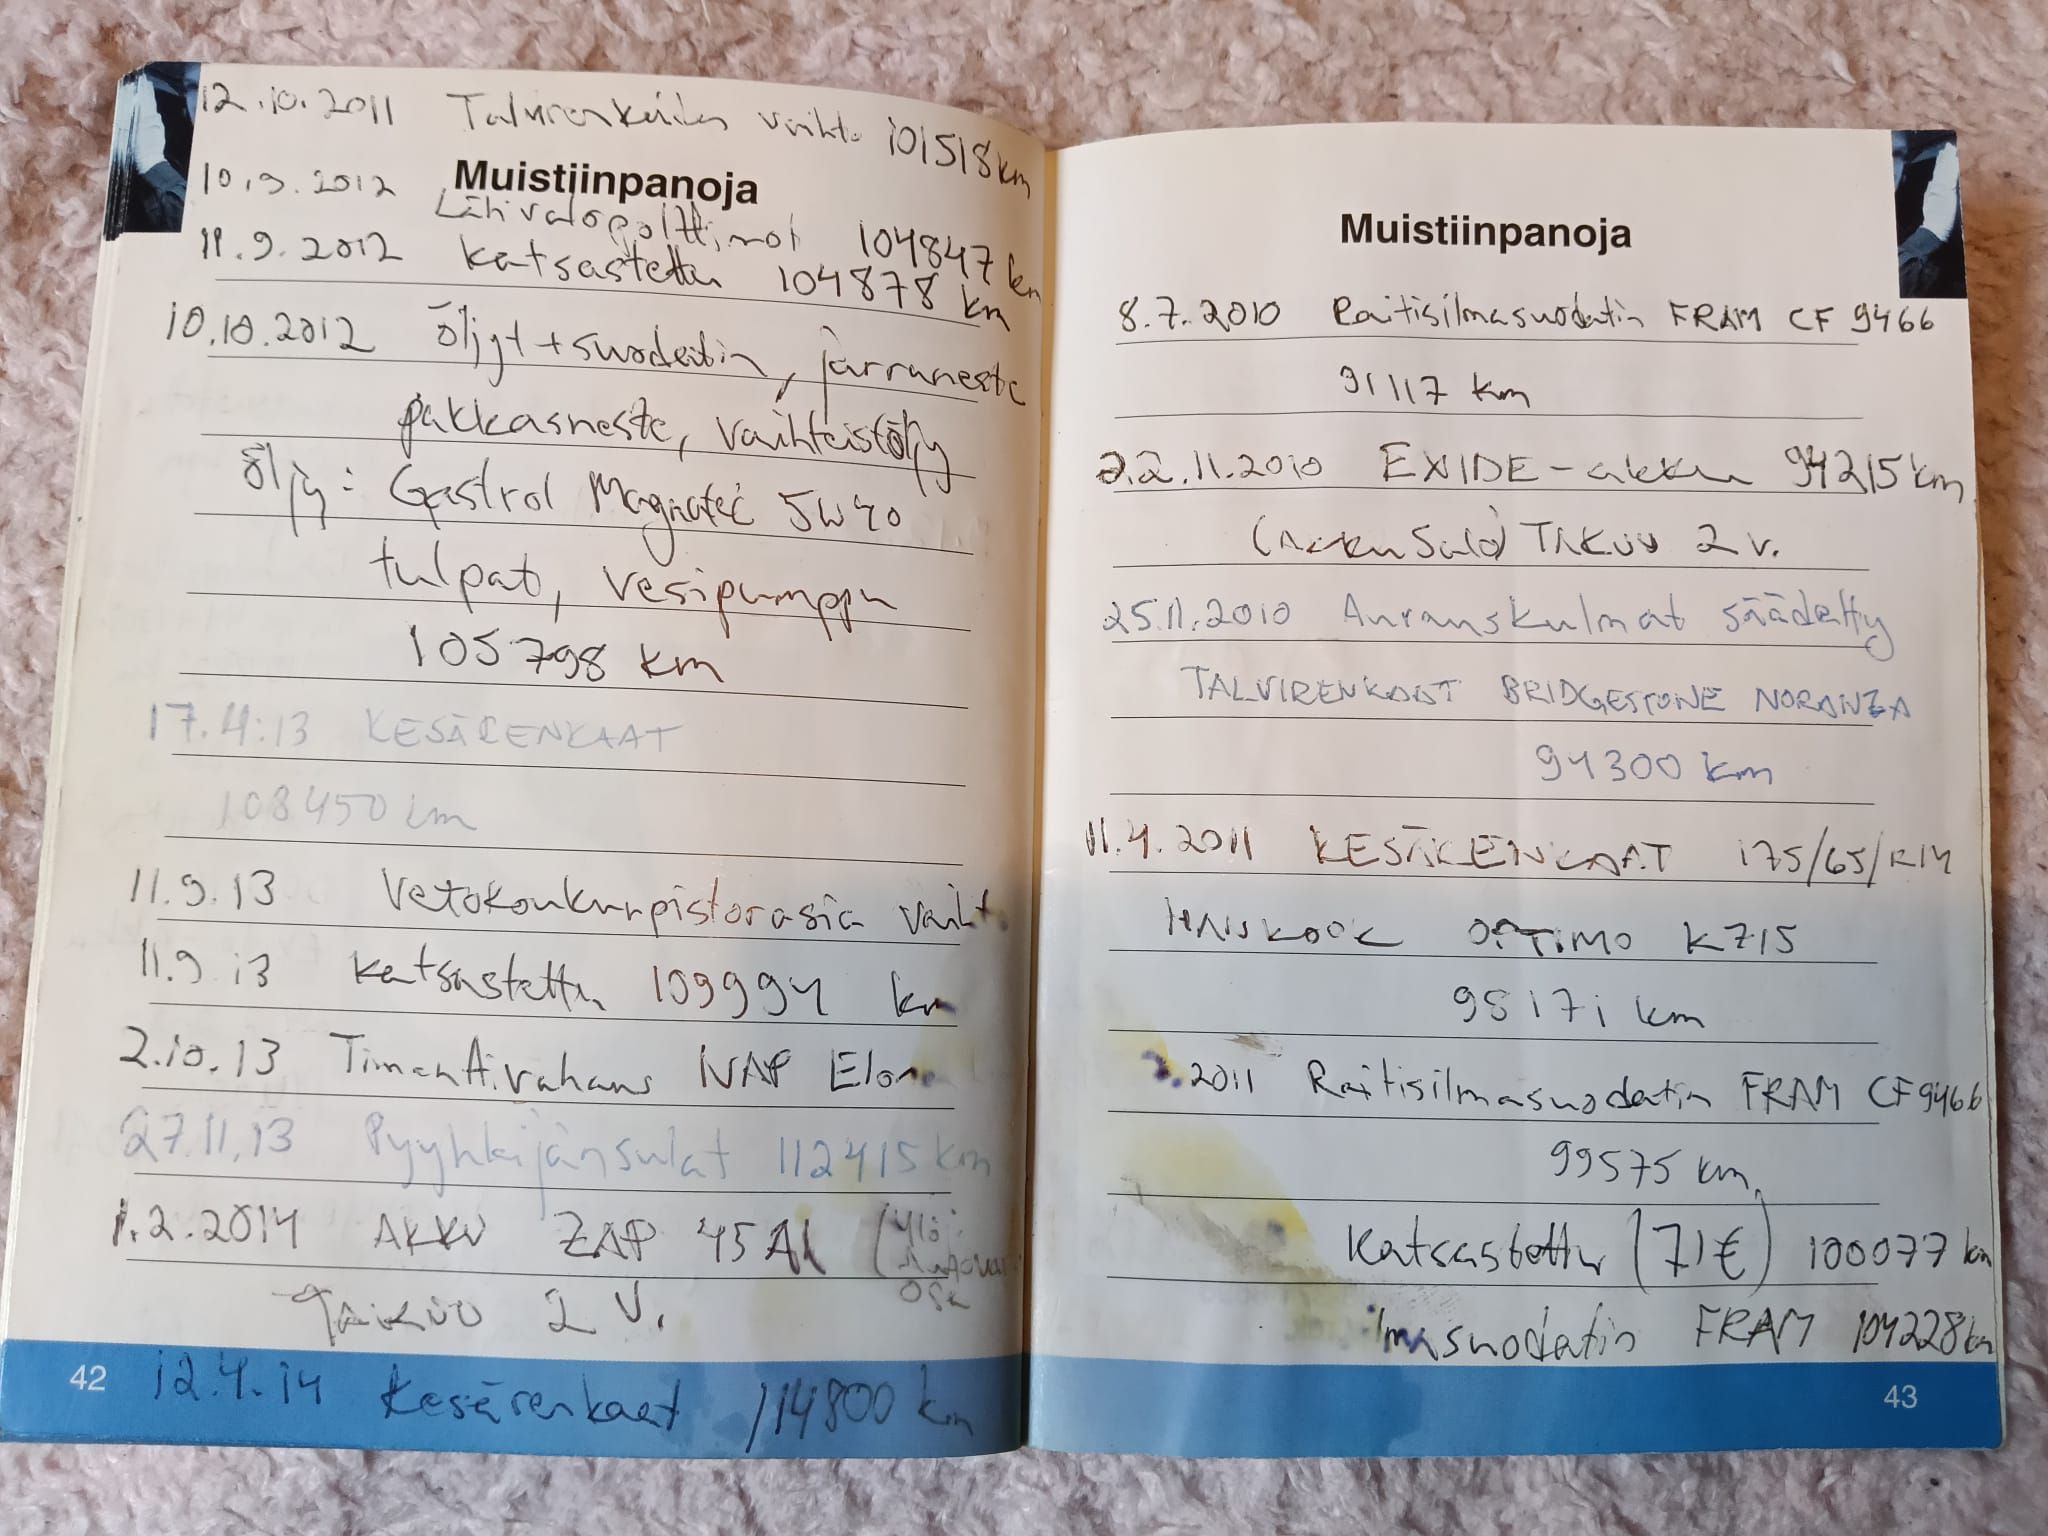 12.10.2011 Talvirenkaiden vaihto 101518 km
Muistiinpanoja
10.9.2012 Lähivalopolttimot 104847 km
11.9.2012 Katsastettu 104878 km
10.10.2012 öljyt + suodatin, jarruneste
pakkasneste, vaihteistoöljy
öljy: Castrol Magnatec 5W40
tulpat, vesipumppu
105798 km
17.4.13 KESÄRENKAAT
108450 km
11.9.13 Vetokoukunpistorasia vaiht
11.9.13 Katsastettu 109994 km
2.10.13
27.11.13 Pyyhkijänsulat 112415 km
1.2.2014 AKKU ZAP 45Ah
TAKUU 2 V.
42
12.4.14 Kesärenkaat 114800 km
Muistiinpanoja
8.7.2010 Raitisilmasuodatin FRAM CF 9466
91117 km
22.11.2010 EXIDE-akku 94215 km
(Akku Salo) TAKUU 2 v.
25.11.2010 Aurauskulmat säädetty
TALVIRENKAAT BRIDGESTONE NORANZA
94300 km
11.4.2011 KESÄRENKAAT 175/65/R14
HANKOOK OPTIMO K715
98171 km
2011 Raitisilmasuodatin FRAM CF9466
99575 km
Katsastettu (71€) 100077 km
ilmasuodatin FRAM 104228 km
43